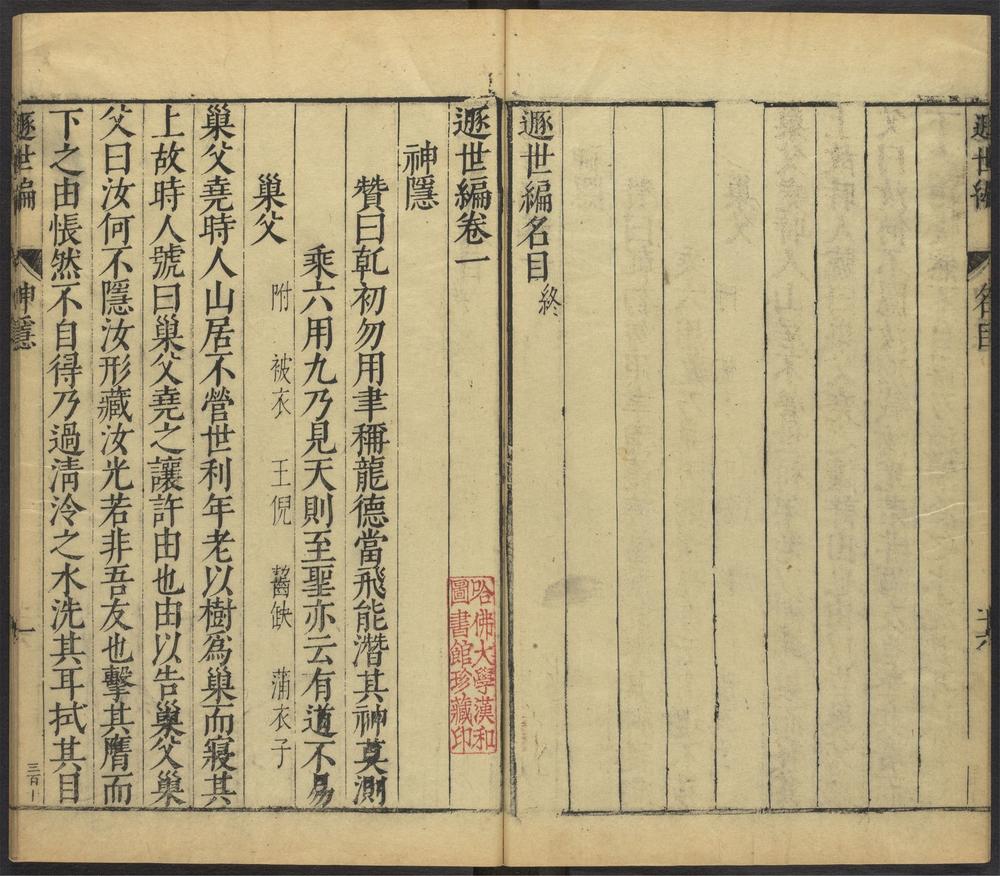 遯世編
名目
十六
遯世編名目終
遯世編卷一
神隱
贊曰乹初勿用聿稱龍德當飛能潛其神莫測
乘六用九乃見天則至聖亦云有道不易
巢父
附 被衣 王倪 齧缺 蒲衣子
巢父堯時人山居不營世利年老以樹爲巢而寢其
上故時人號曰巢父堯之讓許由也由以告巢父巢
父曰汝何不隱汝形藏汝光若非吾友也擊其膺而
下之由悵然不自得乃過清泠之水洗其耳拭其目
遯世編
神隱
一
哈佛大學漢和
圖書館珍藏印